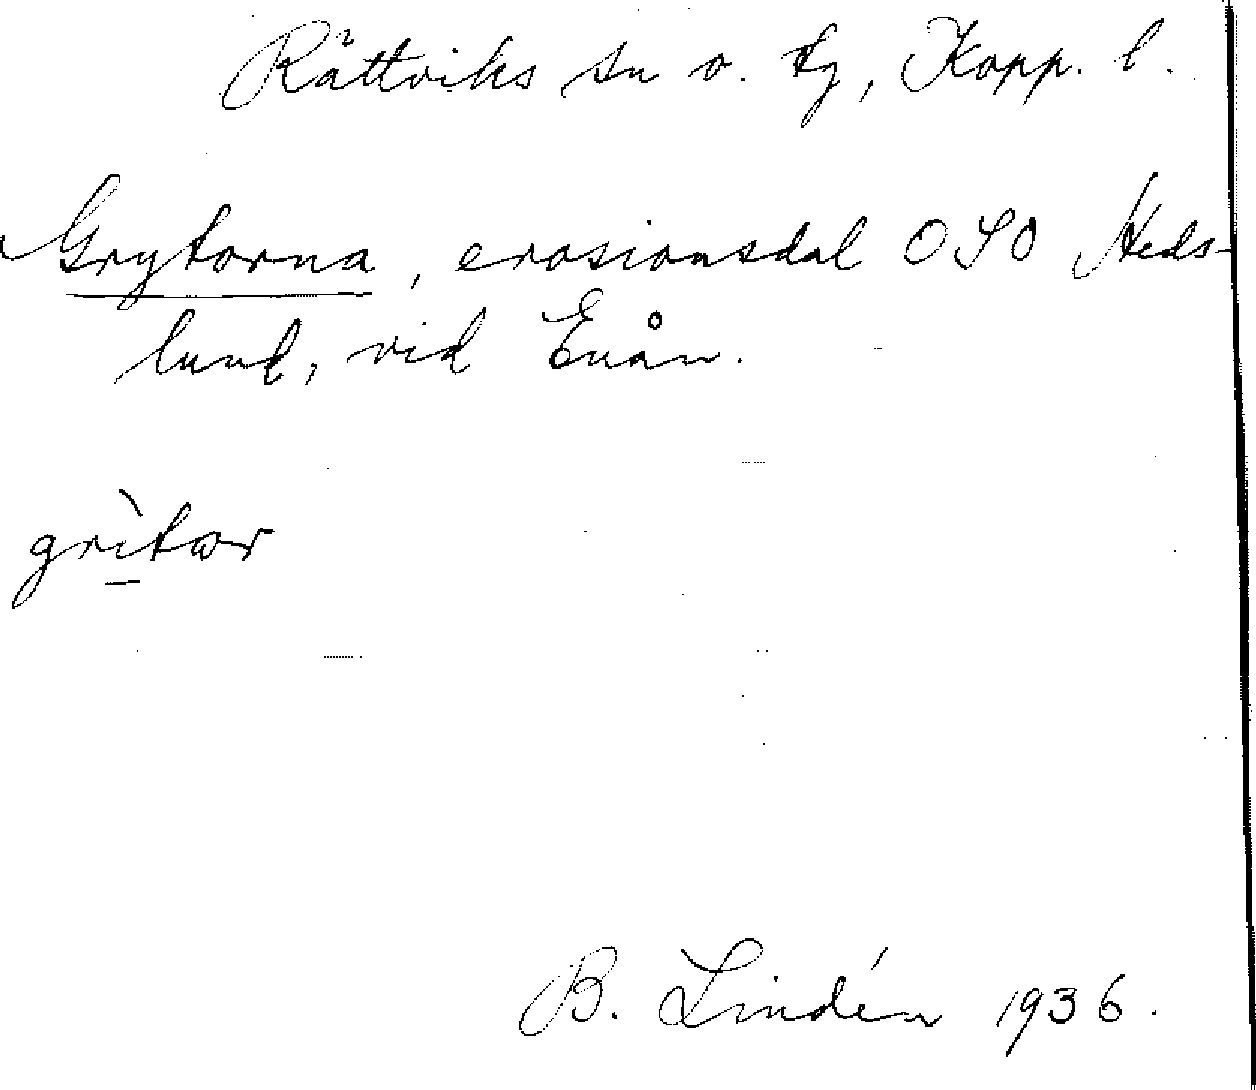 Rättviks sn o. tg, Kopp. l.
Grytorna, erosionsdal OSO Heds-
lund, vid Enån.
grìtωr
B. Lindén 1936.